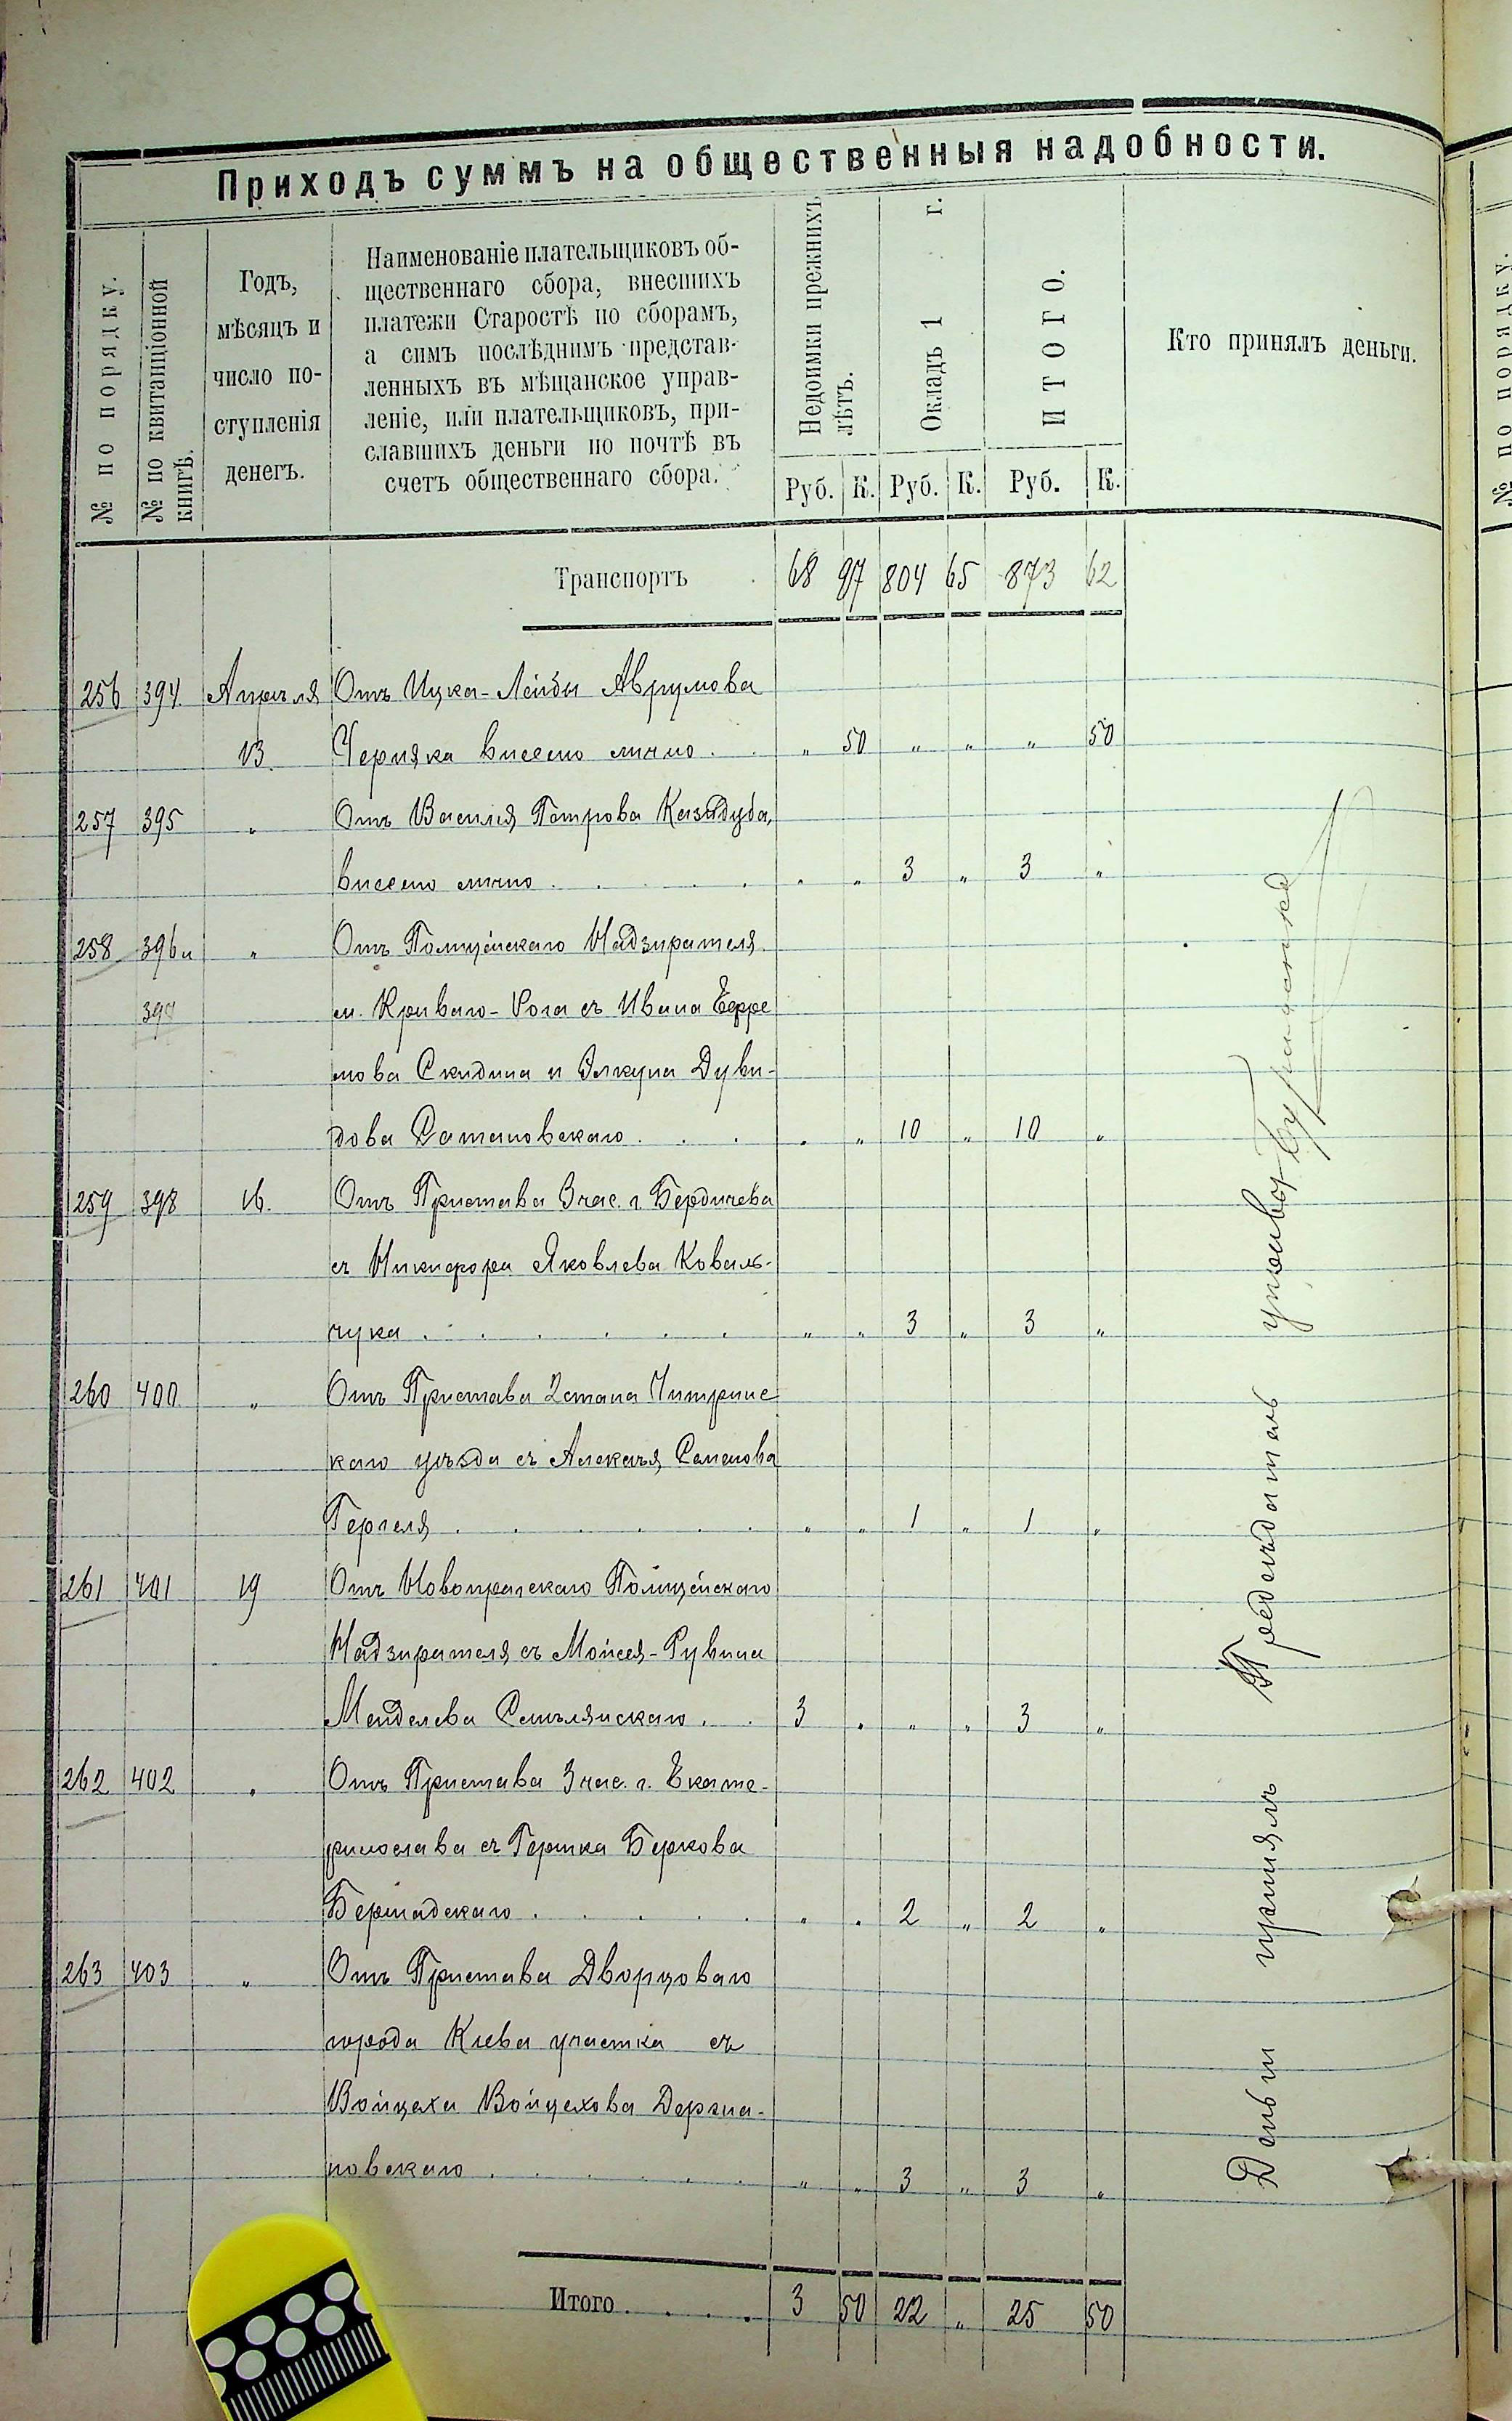 Приходъ суммъ на общественныя надобности.
№ по порядку.
№ по квитанціонной книгѣ.
Годъ,
мѣсяцъ и
число по-
ступленія
денегъ.
Наименованіе плательщиковъ об-
щественнаго сбора, внесшихъ
платежи Старостѣ по сборамъ,
а симъ послѣднимъ представ-
ленныхъ въ мѣщанское управ-
леніе, или плательщиковъ, при-
славшихъ деньги по почтѣ въ
счетъ общественнаго сбора.
Недоимки прежнихъ лѣтъ.
Окладъ 1 г.
ИТОГО.
Кто принялъ деньги.
Руб. К. Руб. К. Руб. К.
Транспортъ 68 97 804 65 873 62
256 394 Апрѣля Отъ Ицка-Лейбы Аврумова
13 Черняка внесено лично . . " 50 " " " 50
257 395 " Отъ Василія Петрова Казидуба,
внесено лично . . . . " " 3 " 3 "
258 396 и " Отъ Полицейскаго Надзирателя
397 м. Криваго-Рога съ Ивана Ефре
мова Скидина и Элкуна Дуви-
дова Сатановскаго . . . " " 10 " 10 "
259 398 16. Отъ Пристава 3 час. г. Бердичева
съ Никифора Яковлева Коваль-
чука . . . . . . " " 3 " 3 "
260 400 " Отъ Пристава 2 стана Чигринс
каго уѣзда съ Алексѣя Семенова
Гергеля . . . . . " " 1 " 1 "
261 401 19 Отъ Новопрагскаго Полицейскаго
Надзирателя съ Мойсея-Рувина
Менделева Смѣлянскаго . . 3 " " " 3 "
262 402 " Отъ Пристава 3 час. г. Екате-
ринослава съ Гершка Беркова
Бершадскаго . . . . " " 2 " 2 "
263 403 " Отъ Пристава Дворцоваго
города Кіева участка съ
Войцеха Войцехова Держа-
новскаго . . . . . " " 3 " 3 "
Итого . . . . 3 50 22 " 25 50
Деньги принялъ Предсѣдатель управы
№ по порядку.